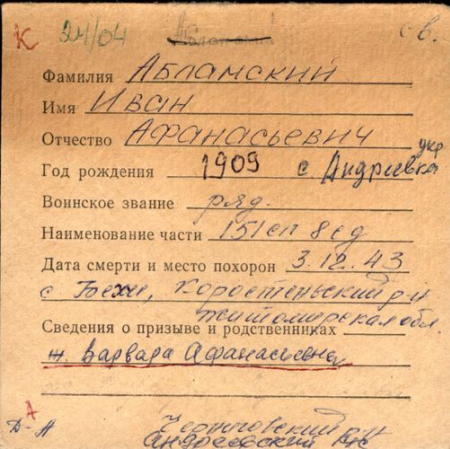 К 24/04 св.
Фамилия Абламский
Имя Иван
Отчество Афанасьевич укр
Год рождения 1909 с. Андриевка
Воинское звание ряд.
Наименование части 151 сп 8 сд
Дата смерти и место похорон 3.12.43
с Бехи, Коростеньский р-н
житомирская обл.
Сведения о призыве и родственниках
ж. Варвара Афанасьевна
А
Д-А
Черниговский р-н
Андреевский